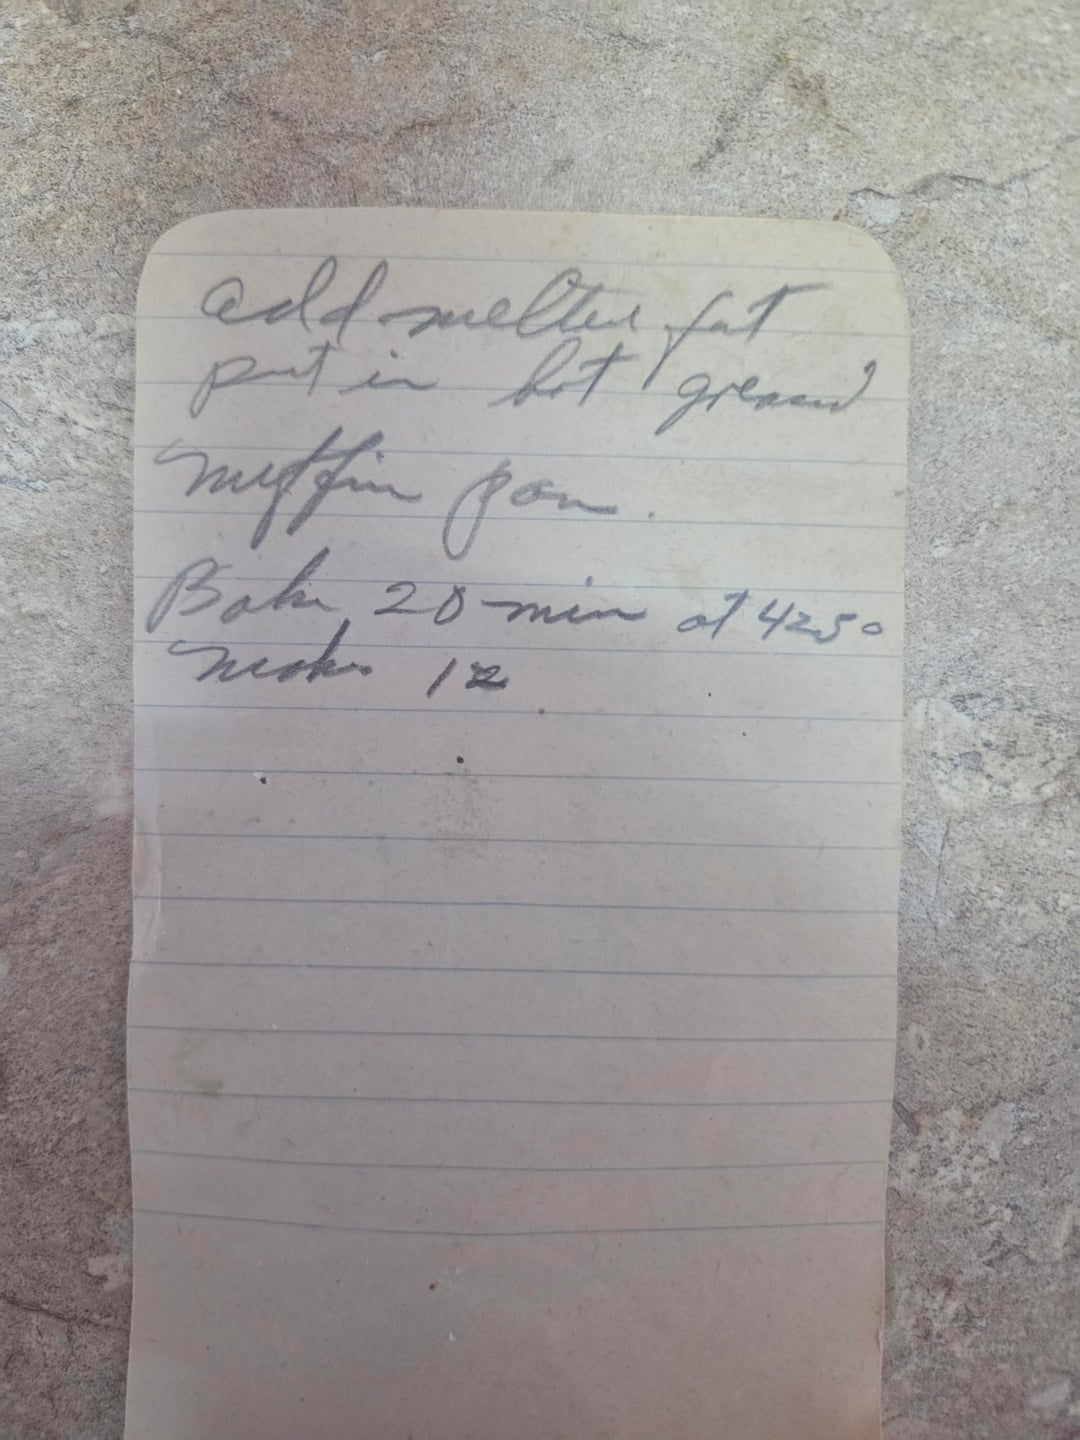 add melted fat
put in hot greased
muffin pan.
Bake 20 min at 425°
Makes 12